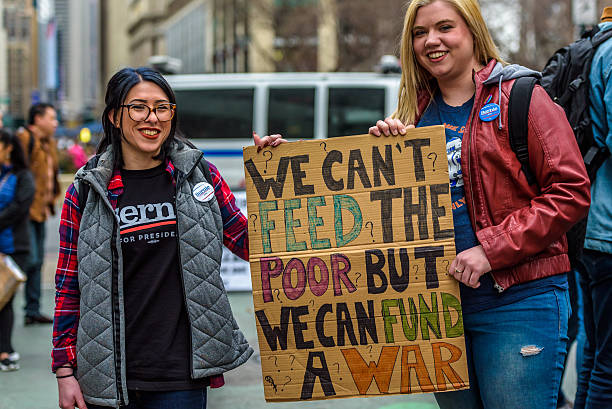 WE CAN'T
FEED THE
POOR BUT
WE CAN FUND
A WAR
? ? ? ? ? ? ?
ernie
FOR PRESIDEN
Bernie